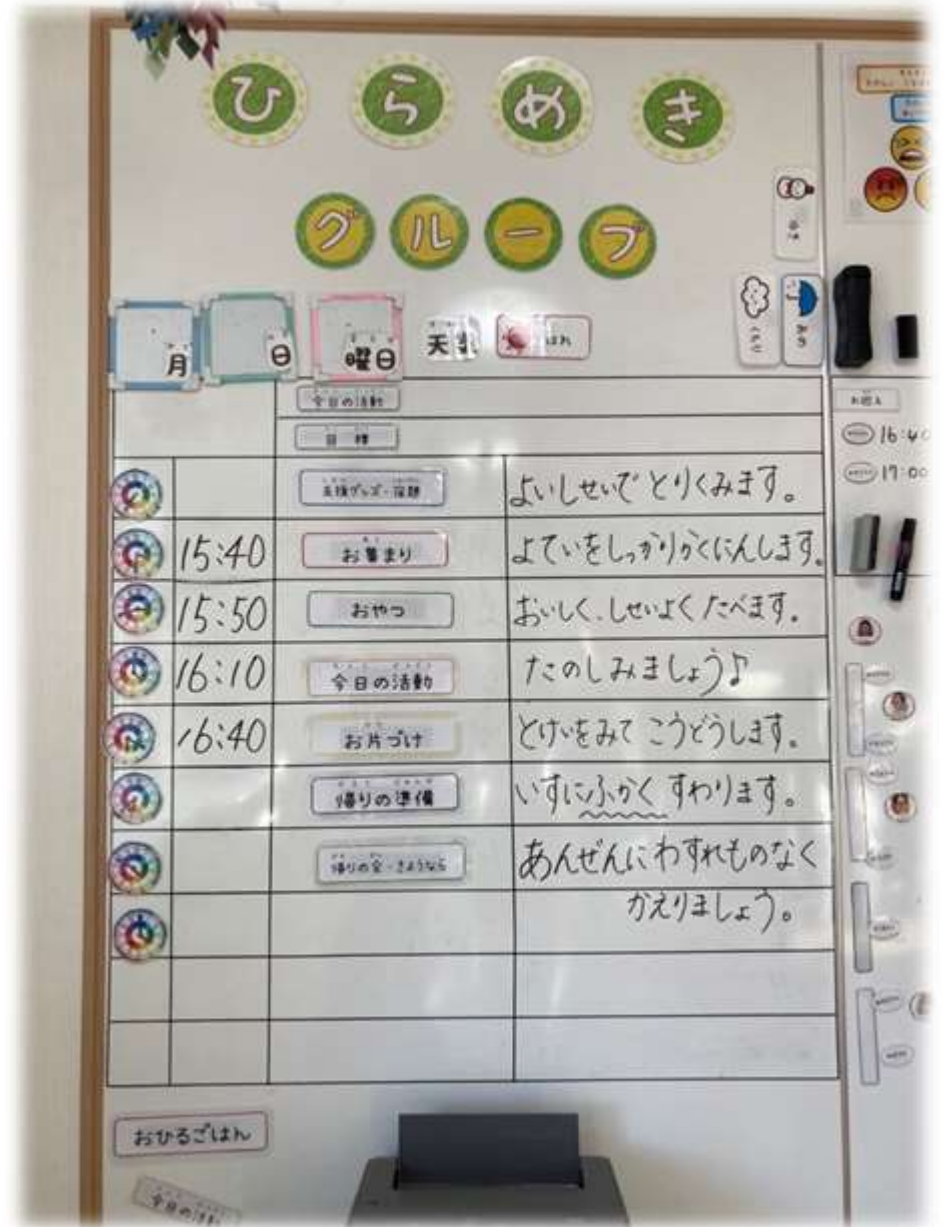 ひらめき
グループ
ゆき
くもり
あめ
月
日
曜日
天気
はれ
今日の活動
目標
お迎え
16:40
17:00
宿題
よいしせいで とりくみます。
15:40
お集まり
よていをしっかりかくにんします。
15:50
おやつ
おいしく、しせいよく たべます。
16:10
今日の活動
たのしみましょう♪
16:40
お片づけ
とけいをみて こうどうします。
帰りの準備
いすにふかく すわります。
帰りの会・さようなら
あんぜんにわすれものなく
かえりましょう。
おひるごはん
今日の活動